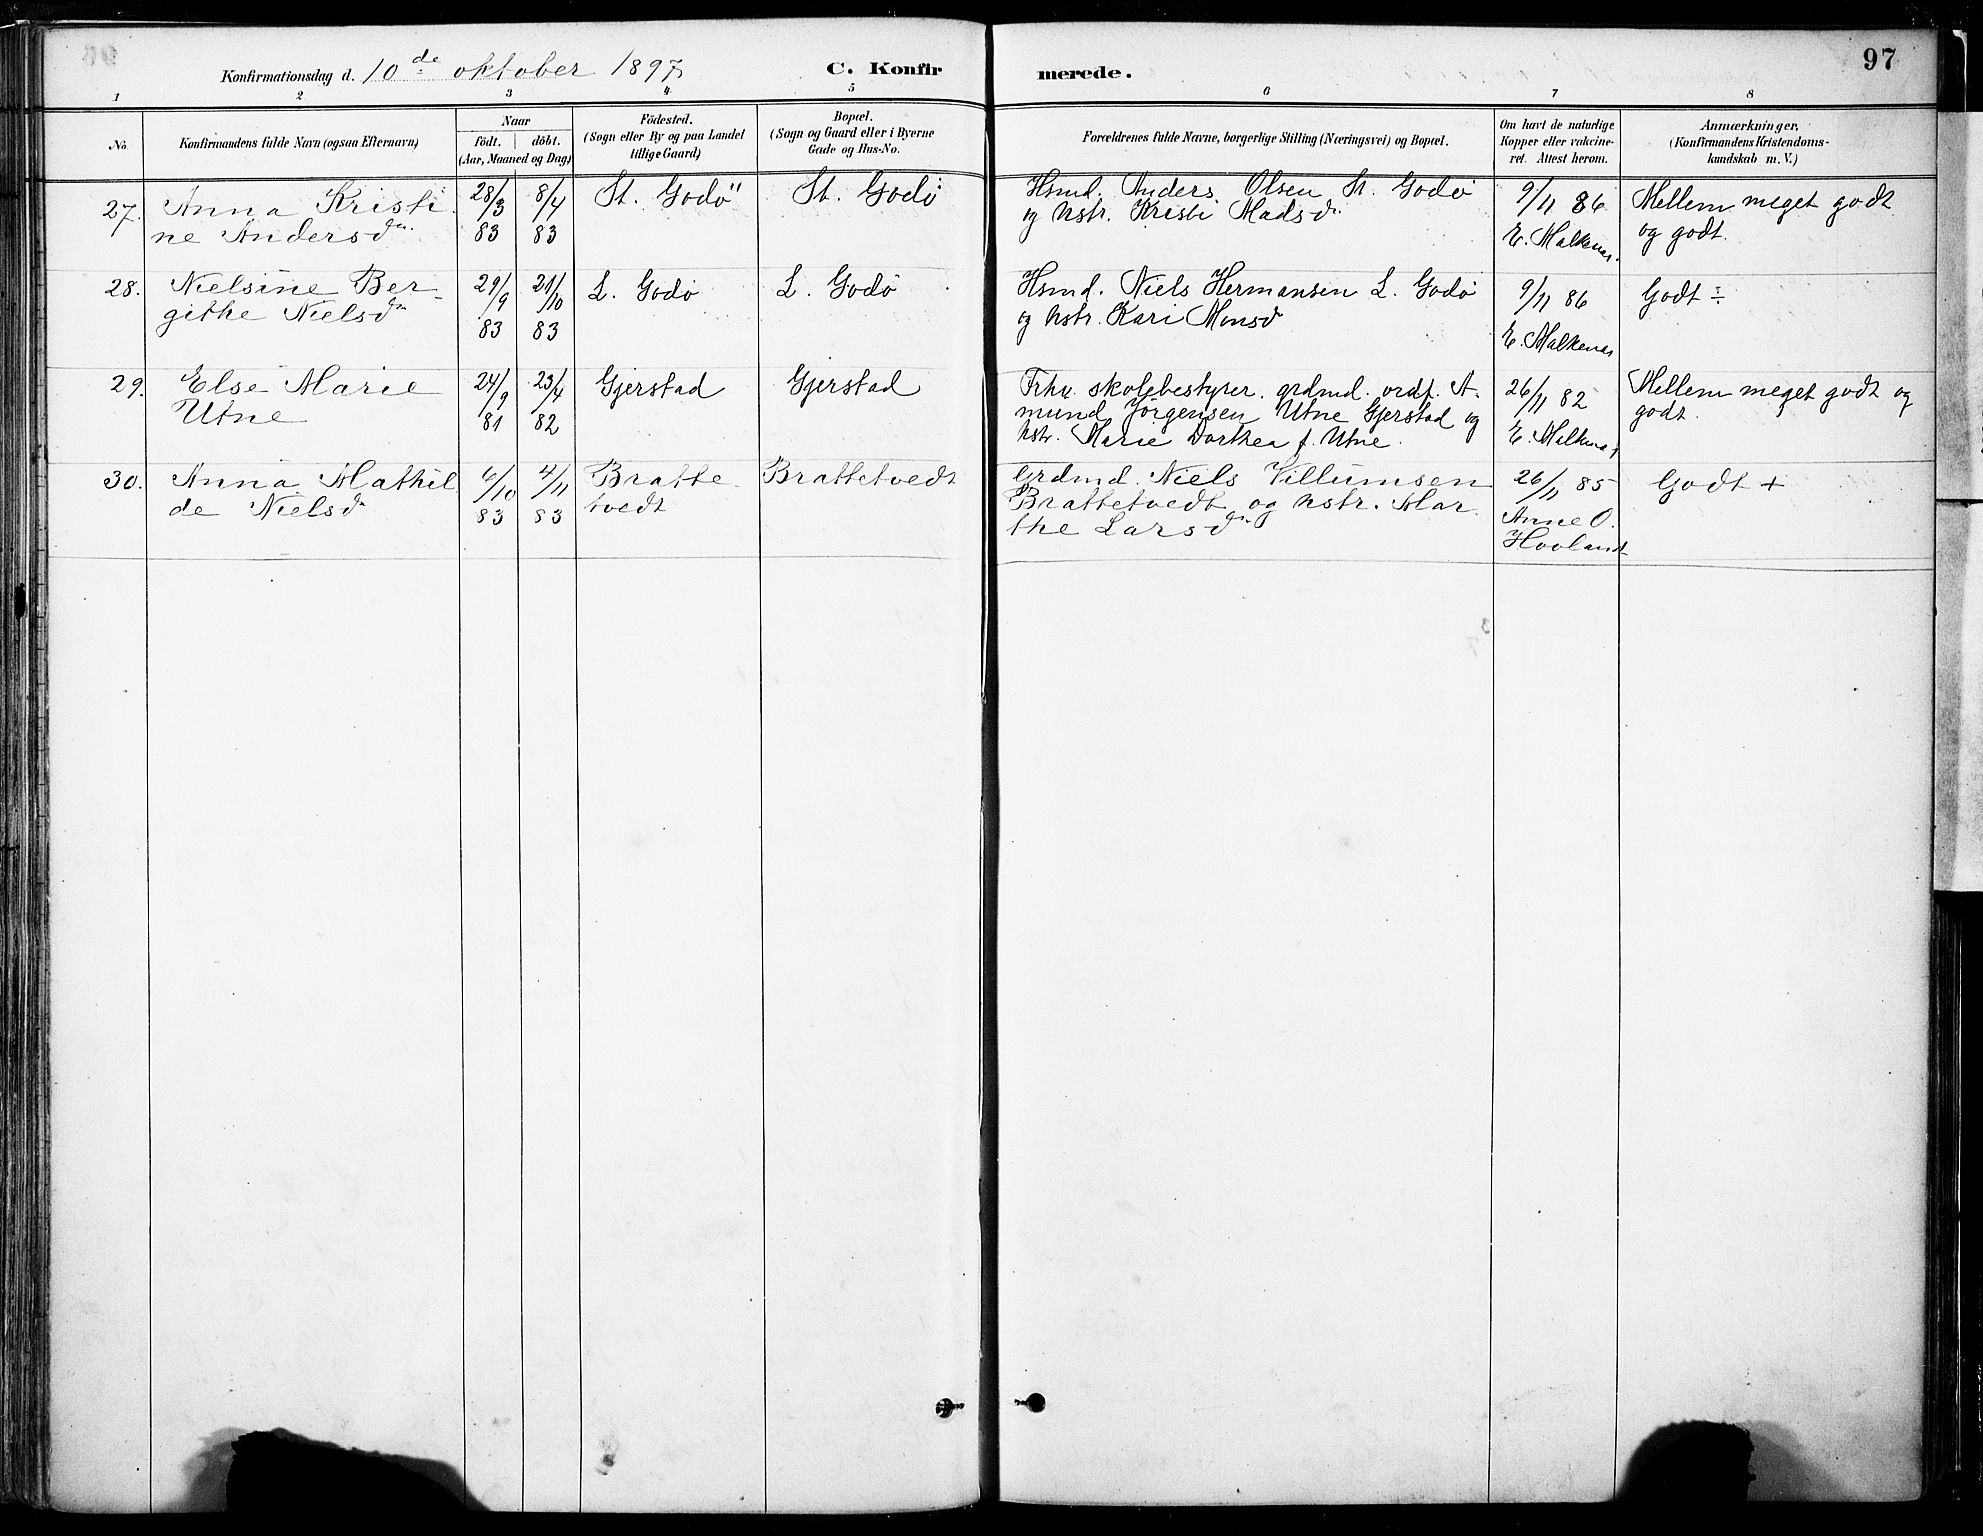 97
Konfirmationsdag d. 10de oktober 1897
C. Konfirmerede.
1 2 3 4 5 6 7 8
No.
Konfirmandens fulde Navn (ogsaa Efternavn)
Naar
födt. döbt.
(Aar, Maaned og Dag)
Födested.
(Sogn eller By og paa Landet
tillige Gaard)
Bopæl.
(Sogn og Gaard eller i Byerne
Gade og Hus-No.
Forældrenes fulde Navne, borgerlige Stilling (Næringsvei) og Bopæl.
Om havt de naturlige
Kopper eller vakcine-
ret. Attest herom.
Anmærkninger,
(Konfirmandens Kristendoms-
kundskab m. V.)
27. Anna Kristi
ne Andersdn.
28/3 83
8/4 83
St. Godö
St. Godö
Hsmd. Anders Olsen St. Godö
og hstr. Kristi Madsdn.
9/11 86
E. Malkenes.
Mellem meget godt
og godt.
28. Nielsine Ber-
githe Nielsdn
29/9 83
21/10 83
L. Godö
L. Godö
Hsmd. Niels Hermansen L. Godö
og hstr. Kari Monsd
9/11 86
E. Malkenes
Godt ÷
29. Else Marie
Utne
24/9 81
23/4 82
Gjerstad
Gjerstad
Frhv. skolebestyrer. grdmd. ordf. A-
mund Jörgensen Utne Gjerstad og
hstr. Marie Dorthea f. Utne.
26/11 82
E. Malkenes
Mellem meget godt og
godt.
30. Anna Mathil
de Nielsdn
6/10 83
4/11 83
Bratte
tvedt
Brattetvedt
Grdmd. Niels Villumsen
Brattetvedt og hstr. Mar
the Larsdn.
26/11 85
Anne O.
Hovland
Godt +